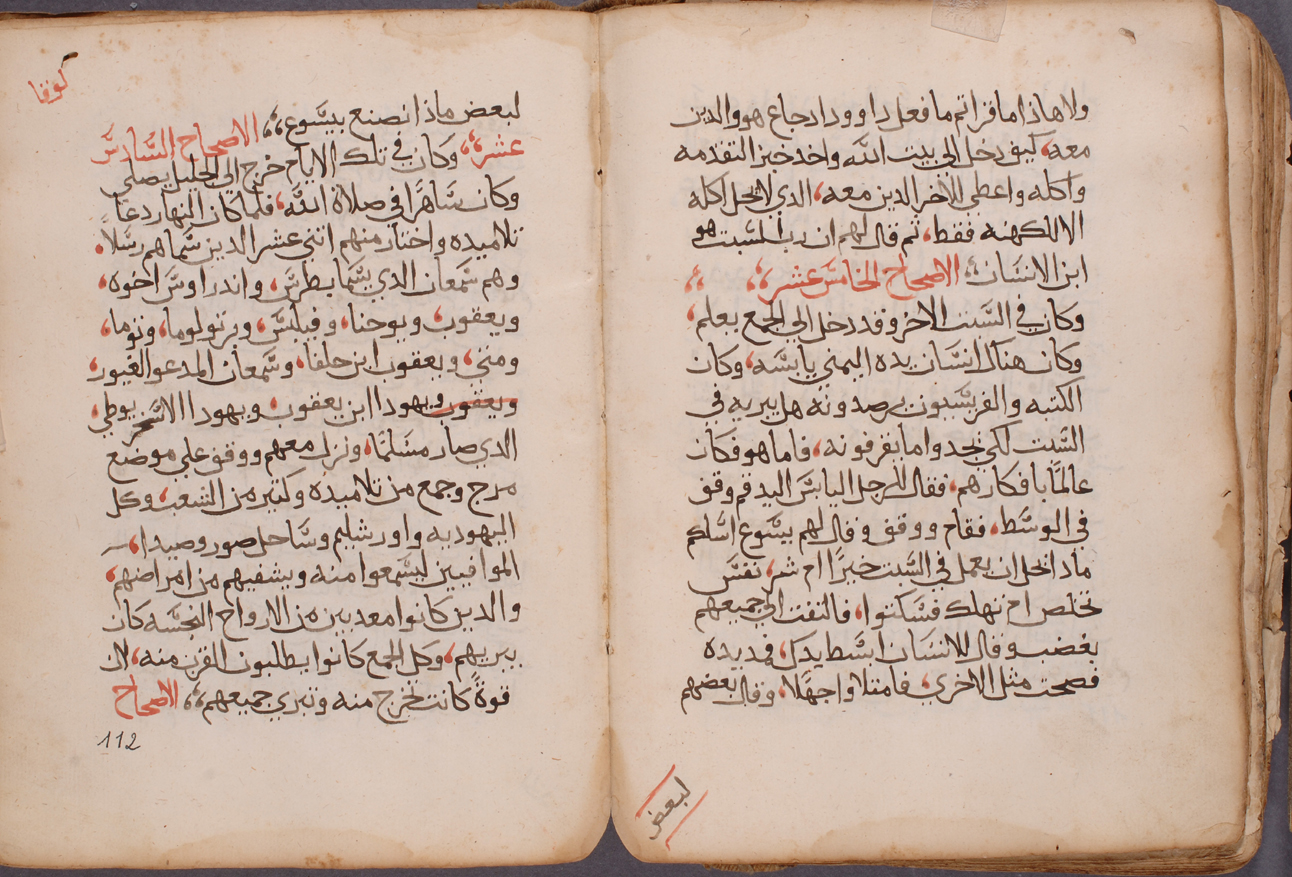 ولا هاذا اما قراتم ما فعل داوود اد جاع هو والدين
معه، كيف دخل الي بيت الله واخد خبز التقدمه
واكله واعطي للاخر الدين معه، الدي لا يحل اكله
الا للكهنه فقط، تم قال لهم ان رب السبت هو
ابن الانسان؛ الاصحاح الخامس عشر؛، ؛
وكان في السبت الاخر وقد دخل الي الجمع يعلم،
وكان هناك انسان يده اليمني يابسه، وكان
الكتبه والفريسيون يرصدونه هل يبريه في
السبت لكي يجدوا ما يقرفونه، فاما هو فكان
عالمًا بافكارهم، فقال للرجل اليابس اليد قم وقف
في الوسط، فقام ووقف وقال لهم يسوع اسلكم
مادا يحل ان يعمل في السبت خيرًا ام شر، نفس
تخلص ام تهلك فسكتوا، فالتفت الي جميعهم
بغضب وقال للانسان ابسط يدك، فمد يده
فصحت متل الاخري، فامتلاوا جهلا، وقال بعضهم
لبعض
لوقا
لبعض ماذا نصنع بيسوع؛، الاصحاح السادس
عشر؛، وكان في تلك الايام خرج الي الجليل يصلي
وكان ساهرًا في صلاة الله، فلما كان النهار دعا
تلاميده واختار منهم اتني عشر الدين سماهم رسلاً،
وهم سمعان الدي يسما بطرس، واندراوس اخوه،
ويعقوب، ويوحنا، وفيلبس، وبرتولوما، وتوما،
ومتي، ويعقوب ابن حلفا، وسمعان المدعو الغيور،
ويعقوب ويهودا ابن يعقوب، ويهودا الاسخريوطي،
الدي صار مسلمًا، ونزل معهم ووقف علي موضع
مرج وجمع من تلاميده وكتير من الشعب، وكل
اليهوديه واورشليم وساحل صور وصيدا،
الموافيين ليسمعوا منه ويشفيهم من امراضهم،
والدين كانوا معدبين من الارواح النجسه كان
يبريهم، وكل الجمع كانوا يطلبون القرب منه، لان
قوةً كانت تخرج منه وتبري جميعهم؛، الاصحاح
112